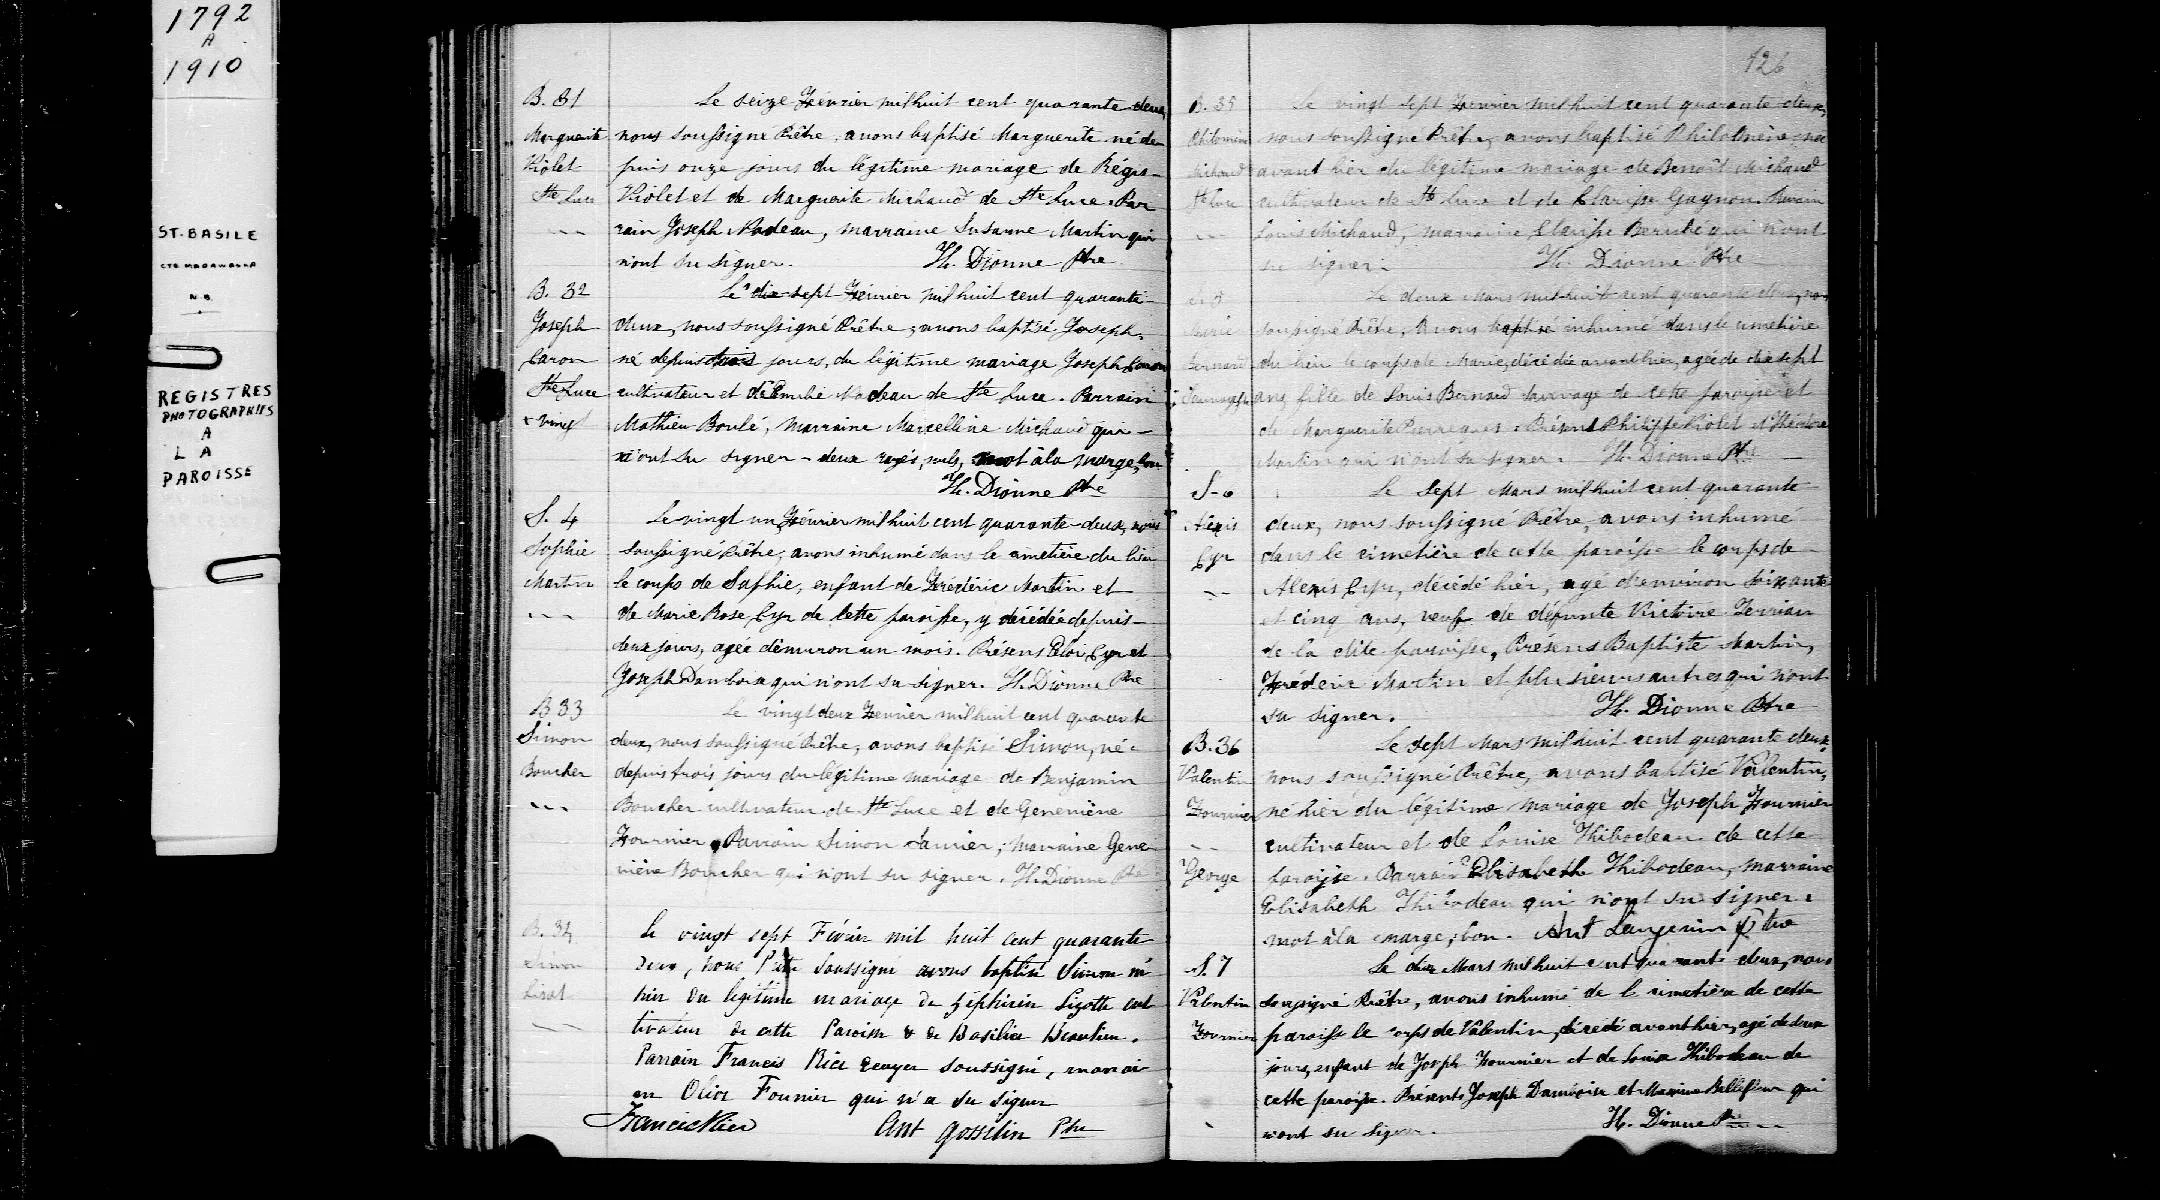 1792
A
1910
ST. BASILE
CTE MADAWASKA
N.B.
REGISTRES
PHOTOGRAPHIES
A
L A
PAROISSE
B. 31
Marguerite
Violet
Ste Luce
Le seize Février mil huit cent quarante deux,
nous soussigné Prêtre, avons baptisé Marguerite né de-
puis onze jours du légitime mariage de Régis
Violet et de Marguerite Michaud de Ste Luce. Par
rain Joseph Nadeau, marraine Susanne Martin qui
n'ont su signer. H. Dionne Ptre
B. 32
Joseph
Caron
Ste Luce
+ vingt
Le dix sept Février mil huit cent quarante
deux, nous soussigné Prêtre, avons baptisé Joseph,
né depuis jours, du légitime mariage Joseph Caron
cultivateur et d'Emelie Nadeau de Ste Luce. Parrain
Mathieu Boulé, marraine Marcelline Michaud qui
n'ont su signer - deux rayés, nuls, mot à la marge, bon
H. Dionne Ptre
S. 4
Sophie
Martin
Le vingt un Février mil huit cent quarante-deux, nous
soussigné Prêtre, avons inhumé dans le cimetière du lieu
le corps de Sophie, enfant de Frédéric Martin et
de Marie Rose Cyr de cette paroisse, y décédée depuis
deux jours, agée d'environ un mois. Présens Eloi Cyr et
Joseph Damboise qui n'ont su signer. H. Dionne Ptre
B 33
Simon
Boucher
Le vingt deux Fevrier mil huit cent quarante
deux, nous soussigné Prêtre, avons baptisé Simon, né
depuis trois jours du légitime mariage de Benjamin
Boucher cultivateur de Ste Luce et de Geneviève
Fournier. Parrain Simon marraine Gene
viève Boucher qui n'ont su signer. H. Dionne Ptre
B. 34
Simon
Le vingt sept Février mil huit cent quarante
deux, nous Prêtre soussigné avons baptisé Simon né
hier du legitime mariage de Zéphirin Lizotte cul
tivateur de cette Paroisse & de Basilice Beaulieu.
Parrain Francis Rice ecuyer soussigné, marrai
ne Olive Fournier qui n'a su signer
Francis Rice Ant Gosselin Ptre
126
B. 35
Philomène
Michaud
Ste Luce
Le vingt sept Fevrier mil huit cent quarante-deux,
nous soussigné Prêtre, avons baptisé Philomène née
avant hier du légitime mariage de Benoît Michaud
cultivateur de Ste Luce et de Clarisse Gagnon. Parrain
Louis Michaud, marraine Clarisse Berubé qui n'ont
su signer. H. Dionne Ptre
Marie
Bernard
Sauvagesse
Le deux Mars mil huit cent quarante deux, nous
soussigné Prêtre, avons baptisé inhumé dans le cimetière
du lieu le corps de Marie, décédée avant hier, agée de dix sept
ans, fille de Louis Bernard sauvage de cette paroisse et
de Marguerite Présens Philippe Violet et Théodore
Martin qui n'ont su signer. H. Dionne Ptre
S - 6
Alexis
Cyr
Le sept Mars mil huit cent quarante
deux, nous soussigné Prêtre, avons inhumé
dans le cimetière de cette paroisse le corps de
Alexis Cyr, décédé hier, agé d'environ soixante
et cinq ans, veuf de défunte Victoire Terrian
de la dite paroisse, Présens Baptiste Martin,
Fréderic Martin et plusieurs autres qui n'ont
su signer. H. Dionne Ptre
B. 36
Valentin
Fournier
George
Le sept Mars mil huit cent quarante deux,
nous soussigné Prêtre, avons baptisé Valentin,
né hier du légitime mariage de Joseph Fournier
cultivateur et de Louise Thibodeau de cette
paroisse. Parrain Elisabeth Thibodeau, marraine
Elisabeth Thibodeau qui n'ont su signer.
mot à la marge, bon. Ant Langevin Ptre
S. 7
Valentin
Fournier
Le dix Mars mil huit cent quarante deux, nous
soussigné Prêtre, avons inhumé de le cimetière de cette
paroisse le corps de Valentin, décédé avant hier, agé de deux
jours, enfant de Joseph Fournier et de Louise Thibodeau de
cette paroisse. Présents Joseph Damboise et Maxime Bellefleur qui
n'ont su signer. H. Dionne Ptre